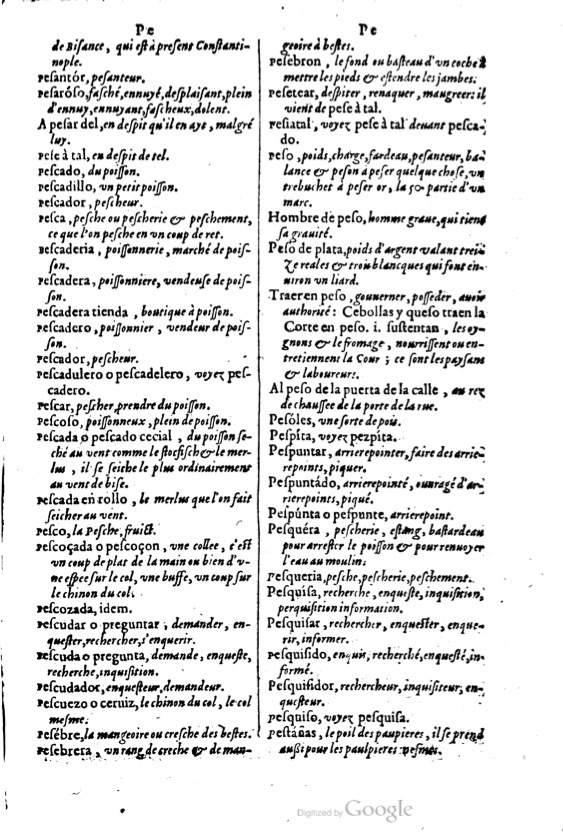 Pe
de Bisance, qui est à present Constanti-
nople.
Pesantór, pesanteur.
Pesaróso, fasché, ennuyé, desplaisant, plein
d'ennuy, ennuyant, fascheux, dolent.
A pesar del, en despit qu'il en ayt, malgré
luy.
Pese à tal, en despit de tel.
Pescado, du poisson.
Pescadillo, vn petit poisson.
Pescador, pescheur.
Pesca, pesche ou pescherie & peschement,
ce que l'on pesche en vn coup de ret.
Pescaderia, poissonnerie, marché de pois-
son.
Pescadera, poissonniere, vendeuse de pois-
son.
Pescadera tienda, boutique à poisson.
Pescadero, poissonnier, vendeur de pois-
son.
Pescador, pescheur.
Pescadulero o pescadelero, voyez pes-
cadero.
Pescar, pescher, prendre du poisson.
Pescoso, poissonneux, plein de poisson.
Pescada o pescado cecial, du poisson se-
ché au vent comme le stocfisch & le mer-
lus, il se seiche le plus ordinairement
au vent de bise.
Pescada en rollo, le merlus que l'on fait
seicher au vent.
Pesco, la Pesche, fruict.
Pescoçada o pescoçon, vne collee, c'est
vn coup de plat de la main ou bien d'v-
ne espee sur le col, vne buffe, vn coup sur
le chinon du col.
Pescozada, idem.
Pescudar o preguntar, demander, en-
quester, rechercher, s'enquerir.
Pescuda o pregunta, demande, enqueste,
recherche, inquisition.
Pescudador, enquesteur, demandeur.
Pescuezo o ceruiz, le chinon du col, le col
mesme.
Pesébre, la mangeoire ou cresche des bestes.
Pesebrera, vn rang de creche & de man-
Pe
geoire à bestes.
Pesebron, le fond ou basteau d'vn coche à
mettre les pieds & estendre les jambes.
Pesetear, despiter, renaquer, maugreer: il
vient de pese à tal.
Pesiatal, voyez pese à tal deuant pesca-
do.
Peso, poids, charge, fardeau, pesanteur, ba-
lance & peson à peser quelque chose, vn
trebuchet à peser or, la 50 partie d'vn
marc.
Hombre de peso, homme graue, qui tient
sa grauité.
Peso de plata, poids d'argent valant trei-
ze reales & trois blancques qui font en-
uiron vn liard.
Traer en peso, gouuerner, posseder, auoir
authorité: Cebollas y queso traen la
Corte en peso. i. sustentan, les oy-
gnons & le fromage, nourrissent ou en-
tretiennent la Cour; ce sont les paysans
& laboureurs.
Al peso de la puerta de la calle, au rez
de chaussee de la porte de la rue.
Pesóles, vne sorte de pois.
Pespíta, voyez pezpita.
Pespuntar, arrierepointer, faire des arrie-
repoints, piquer.
Pespuntádo, arrierepointé, ouuragé d'ar-
rierepoints, piqué.
Pespúnta o pespunte, arrierepoint.
Pesquéra, pescherie, estang, bastardeau
pour arrester le poisson & pour renuoyer
l'eau au moulin.
Pesqueria, pesche, pescherie, peschement.
Pesquísa, recherche, enqueste, inquisition,
perquisition information.
Pesquisar, rechercher, enquester, enque-
rir, informer.
Pesquisido, enquis, recherché, enquesté, in-
formé.
Pesquisidor, rechercheur, inquisiteur, en-
questeur.
Pesquiso, voyez pesquisa.
Pestáñas, le poil des paupieres, il se prend
aussi pour les paulpieres mesmes.
Digitized by Google